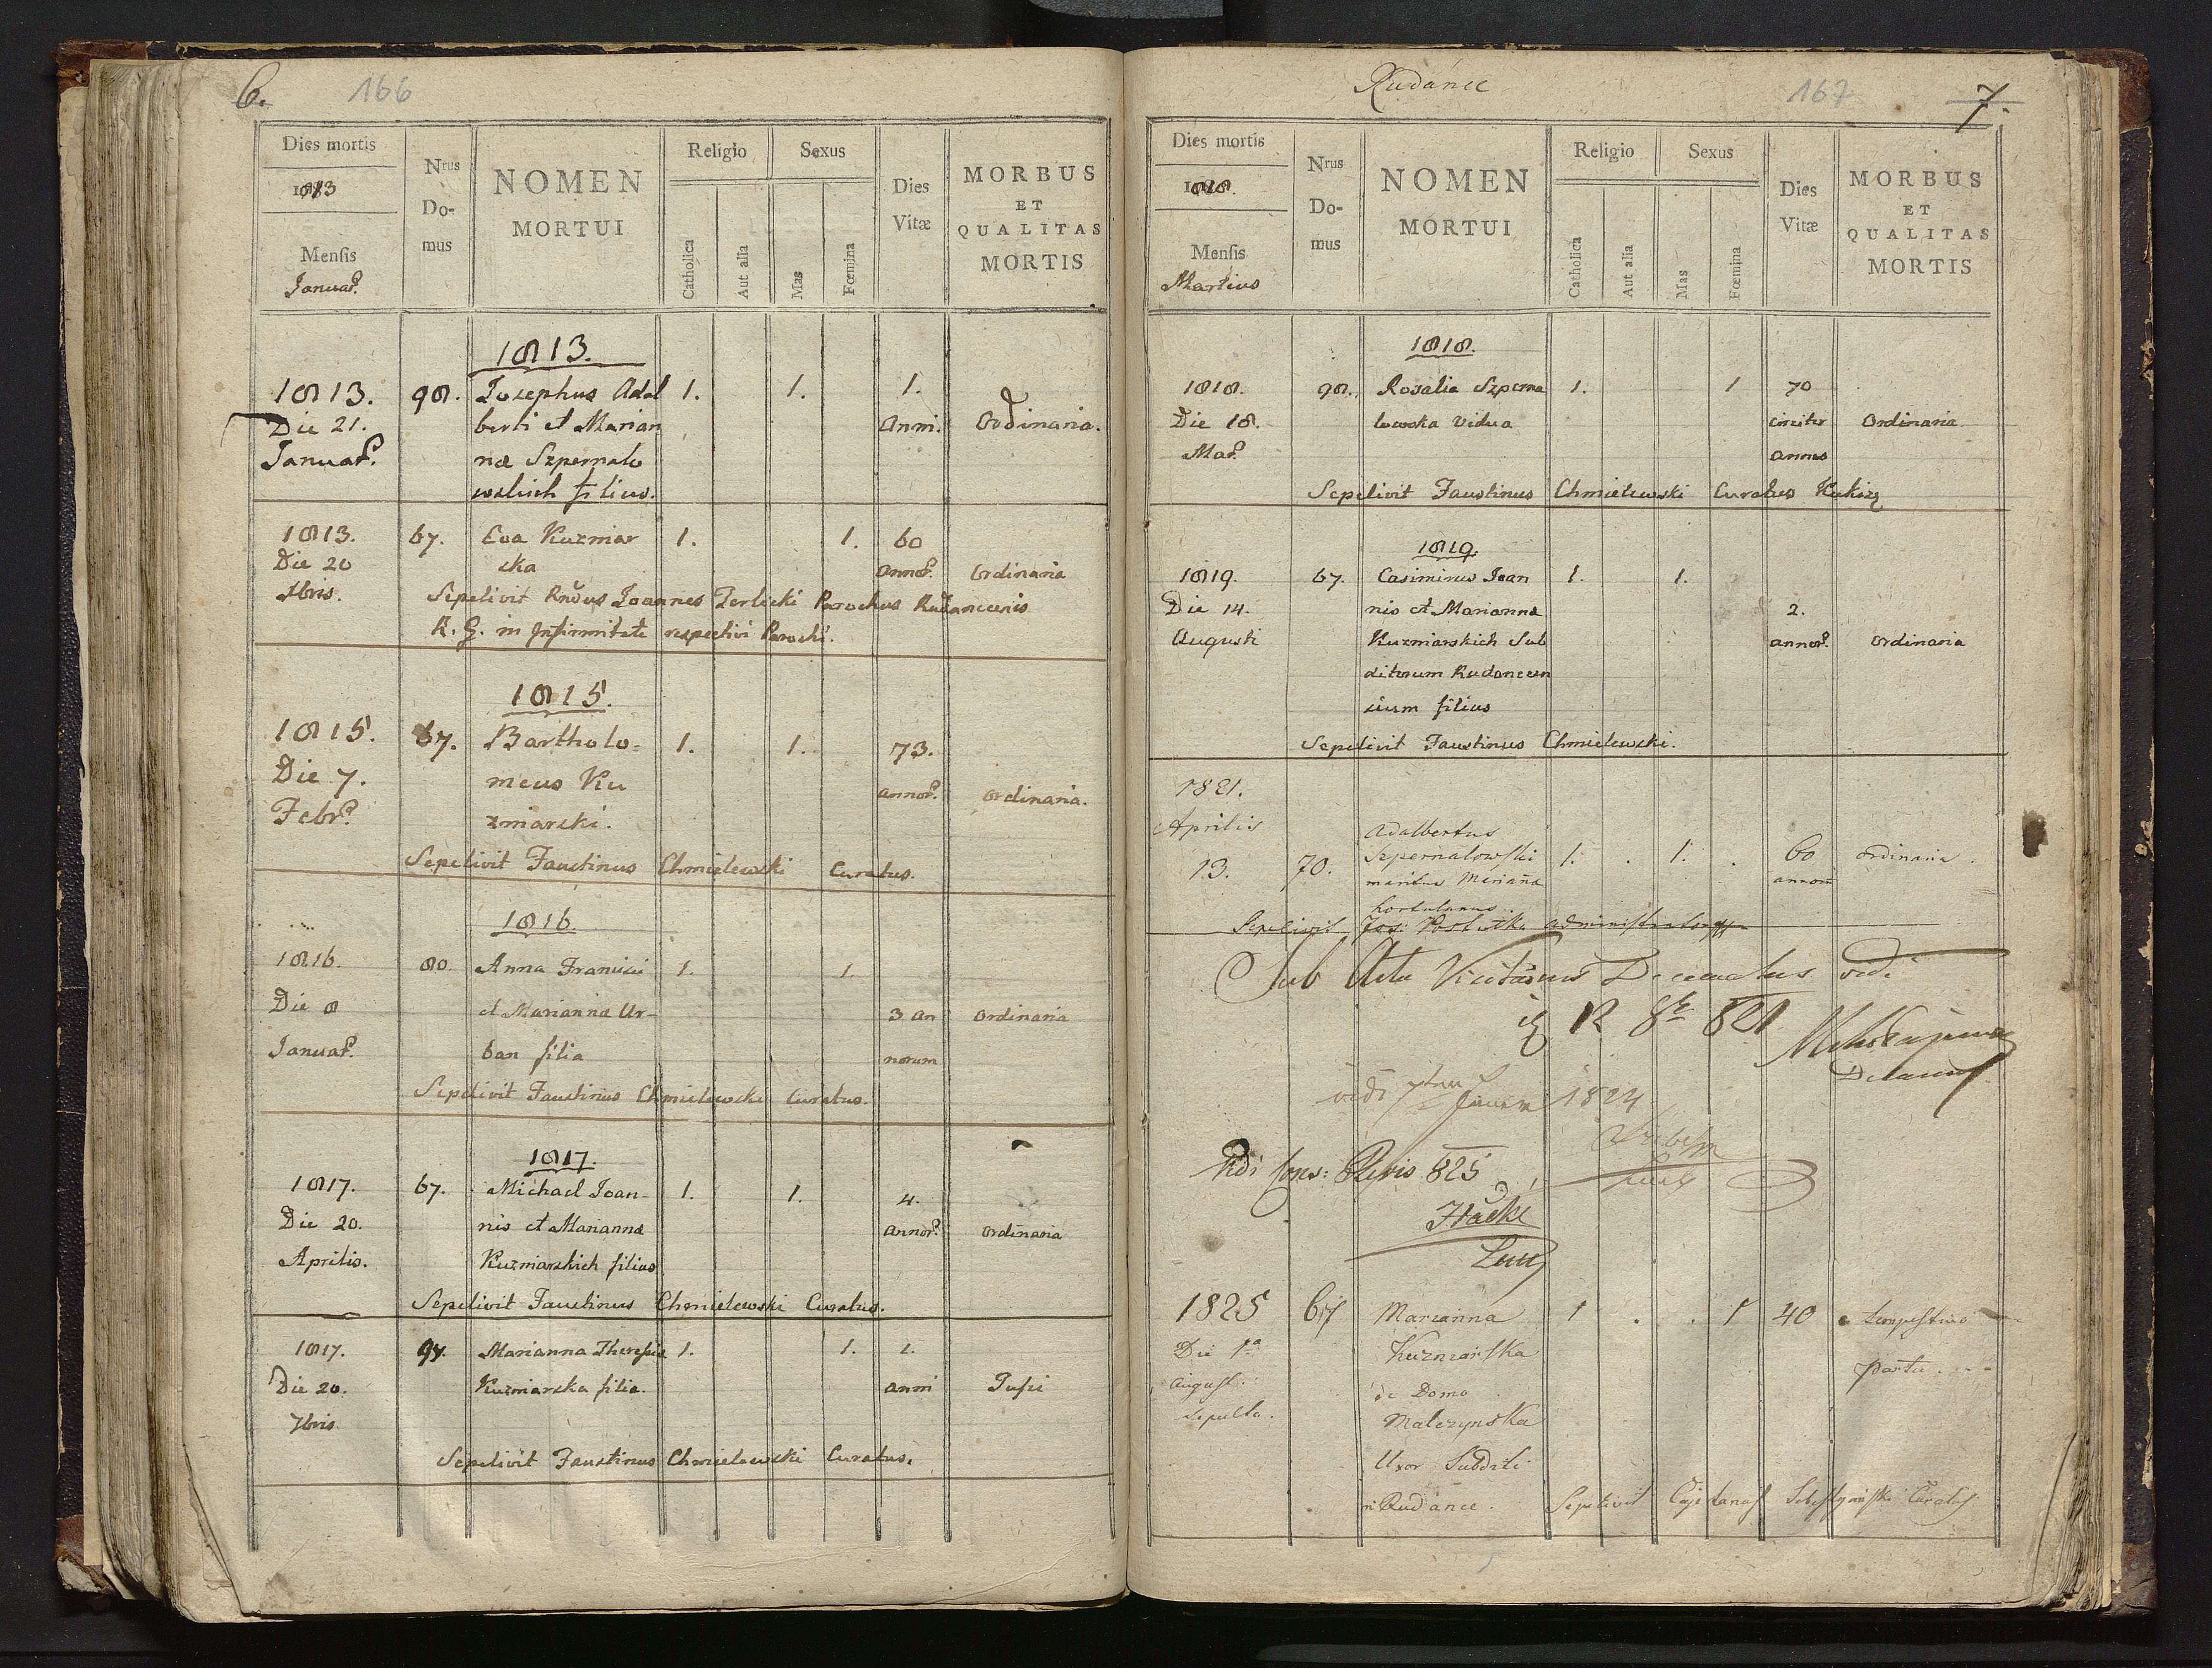 6.
166
Dies mortis
1813
Mensis
Januar.
Nrus
Do-
mus
NOMEN
MORTUI
Religio
Catholica
Aut alia
Sexus
Mas
Fœmina
Dies
Vitæ
MORBUS
ET
QUALITAS
MORTIS
1813.
1813. 98. Josephus Adal 1. 1. 1.
Die 21. berti et Marian Anni. Ordinaria.
Januar. næ Szpernalo
wskich filius.
1813. 67. Eva Kuzmiar 1. 1. 60
Die 20 ska annor. Ordinaria
Sepelivit Rndus Joannes Terlecki Parochus Rudancensis
R. G. in Infirmitate respectivi Parochi.
1815.
1815. 67. Bartholo- 1. 1. 73.
Die 7. meus Ku annor. ordinaria.
Febr. zmarski.
Sepelivit Faustinus Chmielewski Curatus.
1816.
1816. 80. Anna Francisci 1. 1.
Die 8 et Marianna Ur- 3 an ordinaria
Januar. ban filia norum
Sepelivit Faustinus Chmielewski Curatus.
1817.
1817. 67. Michael Joan- 1. 1. 4.
Die 20. nis et Marianna annor. ordinaria
Aprilis. Kuzmiarskich filius
Sepelivit Faustinus Chmielewski Curatus.
1817. 97. Marianna Theresia 1. 1. 1.
Die 20. Kuzmiarska filia. anni Tussi
7bris
Sepelivit Faustinus Chmielewski Curatus.
Rudańce
167
7.
Dies mortis
1818.
Mensis
Martius
Nrus
Do-
mus
NOMEN
MORTUI
Religio
Catholica
Aut alia
Sexus
Mas
Fœmina
Dies
Vitæ
MORBUS
ET
QUALITAS
MORTIS
1818.
1818. 98. Rosalia Szperna 1. 1 70
Die 18. lowska Vidua circiter Ordinaria
Mar. annos
Sepelivit Faustinus Chmielewski Curatus
1819.
1819. 67. Casimirus Joan 1. 1.
Die 14. nis et Marianna 2.
Augusti Kuzmiarskich Sub annor. ordinaria
ditorum Rudancen
sium filius
Sepelivit Faustinus Chmielewski.
1821.
Aprilis Adalbertus
13. 70. Szpernalowski 1. . 1. . 60 ordinaria.
maritus Mariana annor
hortulanus.
Sepelivit administrator
Sub Actu Visitationis Decanatus vidi
12 8br 821
Decanus
vidi 1824
Vidi 825
1825 67 Marianna 1 . . 1 40 tempestivo
Die 1a Kuzniarska partu.
August. de Domo
Sepulta. Malczynska
Uxor Subditi
Rudance. Sepelivit Cajetanus Curatus